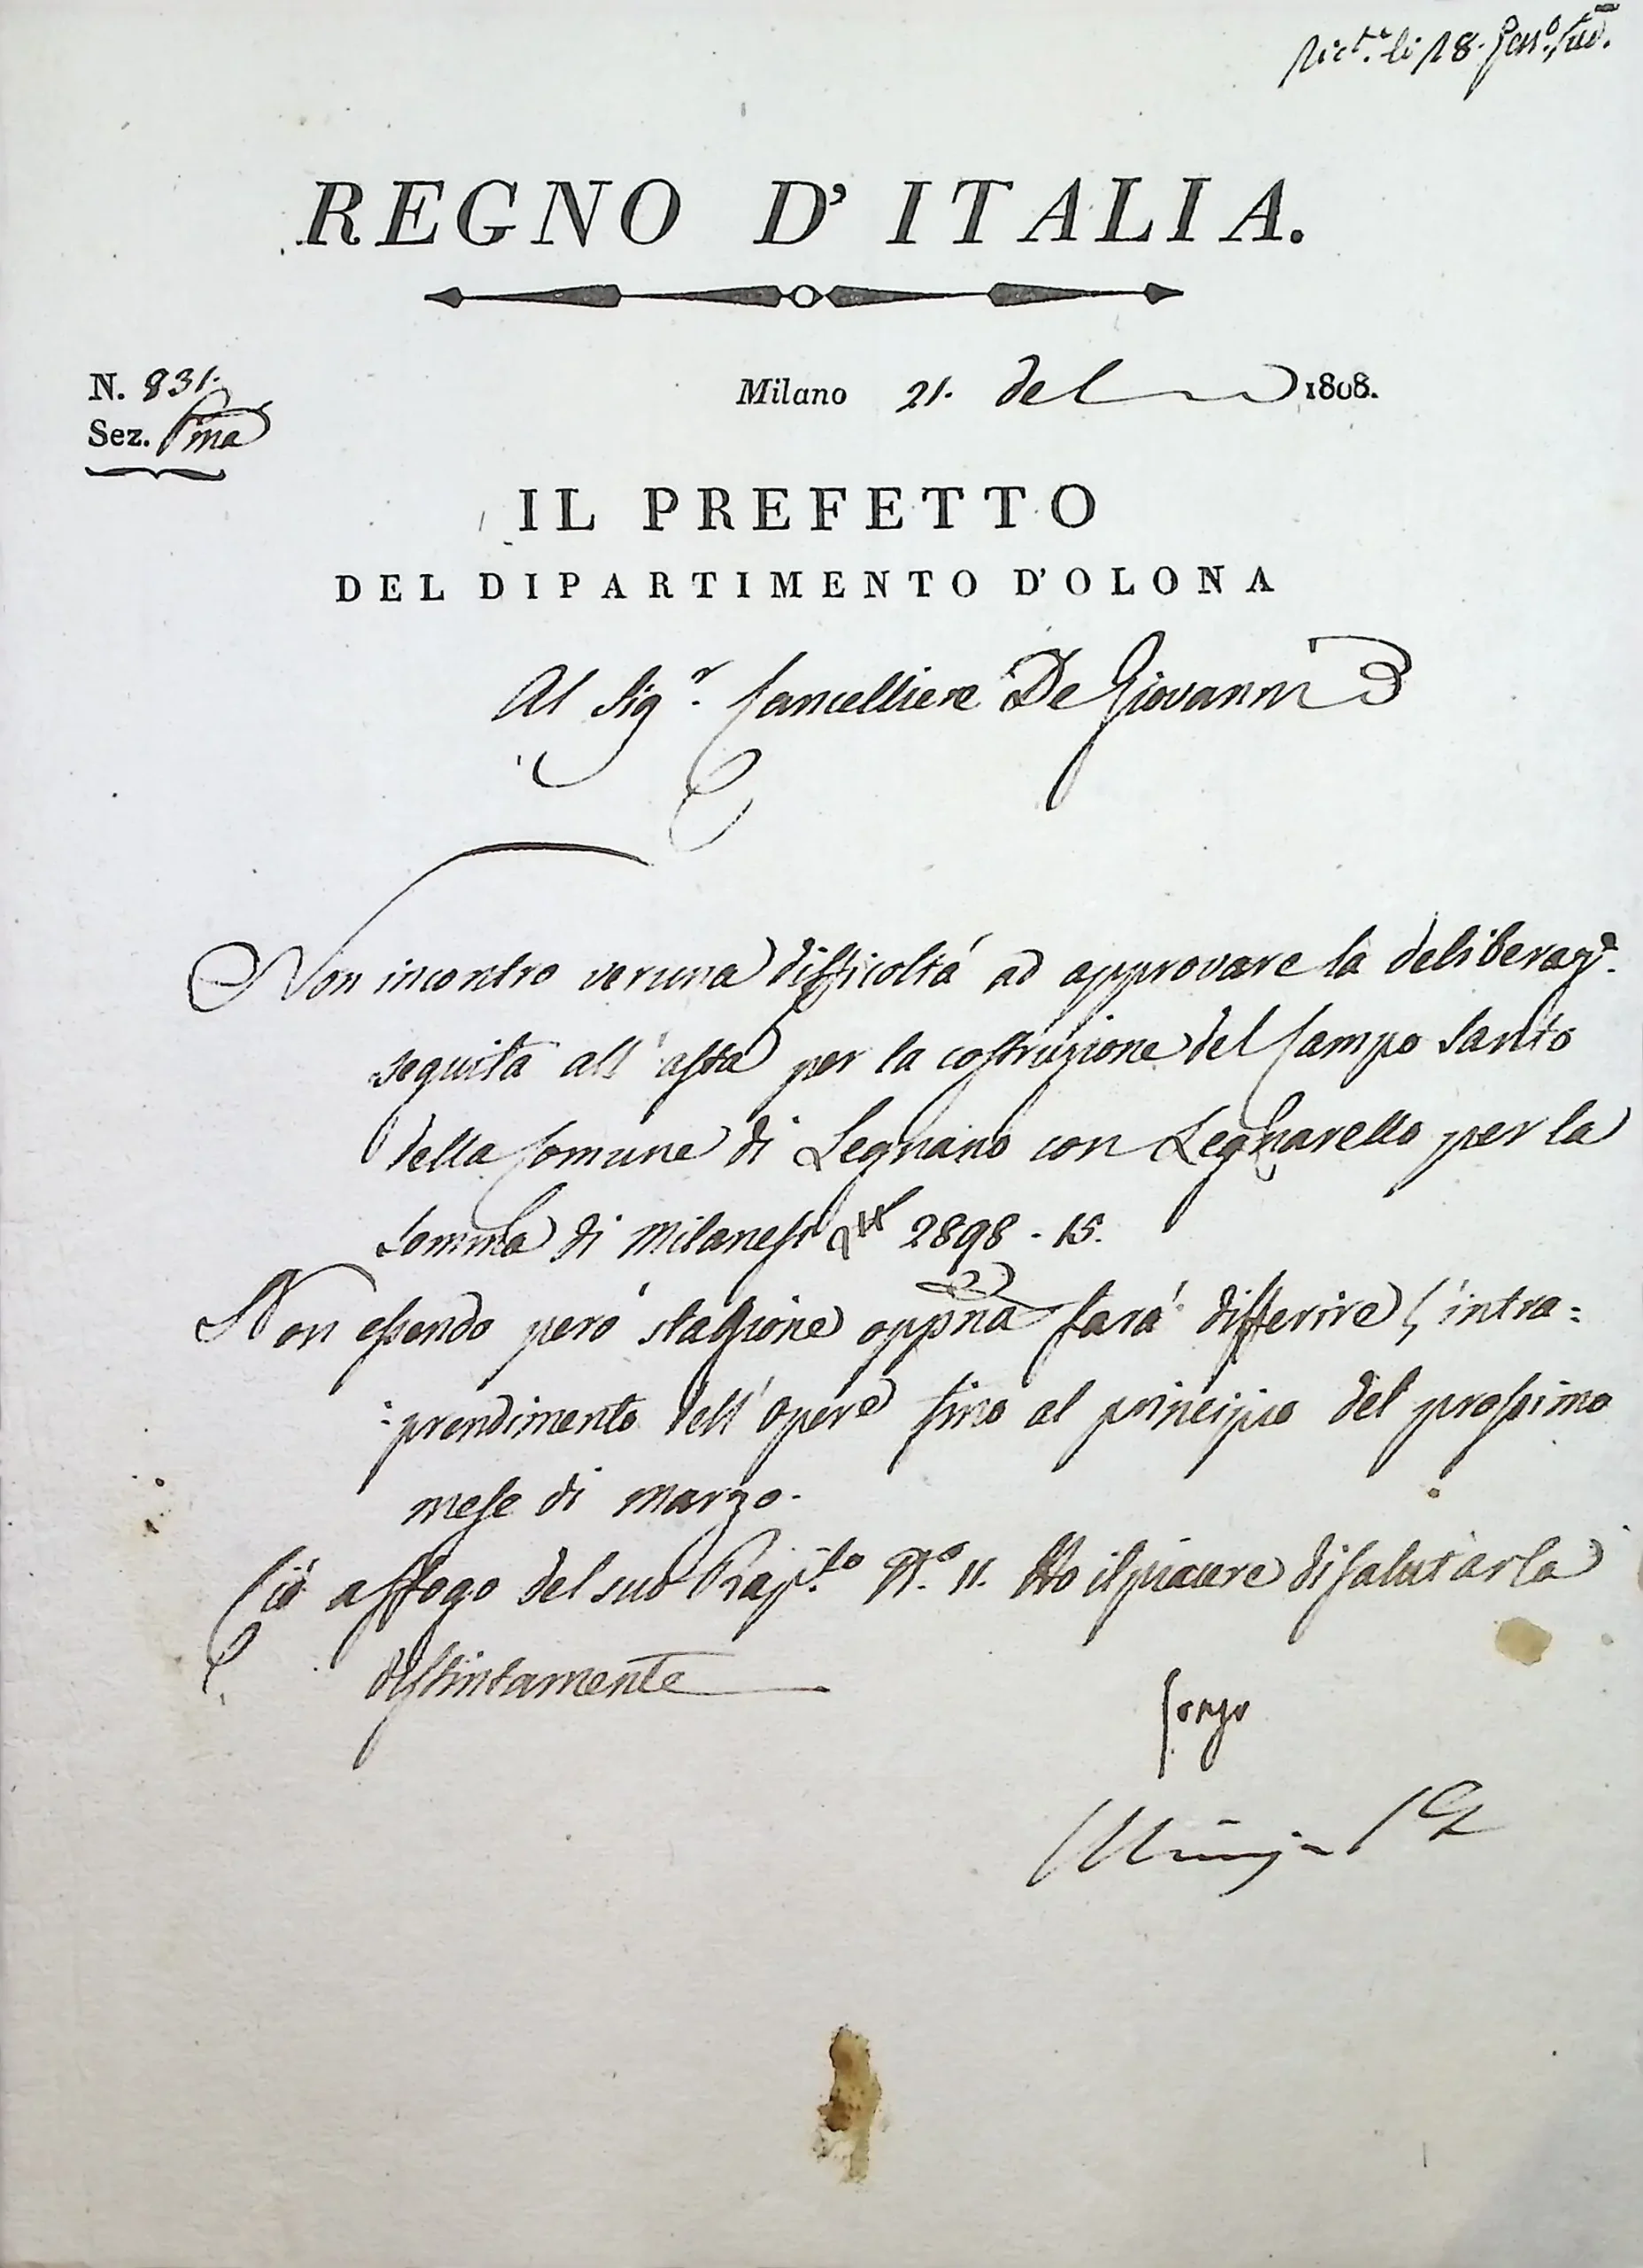 Ric.ta li 28. Gen.o sud.
REGNO D' ITALIA.
N. 831.
Sez. Pma
Milano 21. del 1808.
IL PREFETTO
DEL DIPARTIMENTO D'OLONA
Al Sig.r Cancelliere De Giovanni
Non incontro veruna difficoltá ad approvare la deliberaz.e
seguita all' asta per la costruzione del Campo Santo
della Comune di Legnano con Legnarello per la
Somma di Milanesi 2898 - 15.
Non essendo però stagione oppna fará differire l'intra=
:prendimento dell' Opere fino al principio del prossimo
mese di marzo.
Ció a sfogo del suo Rap.to N.o 11. Ho il piacere di salutarla
distintamente